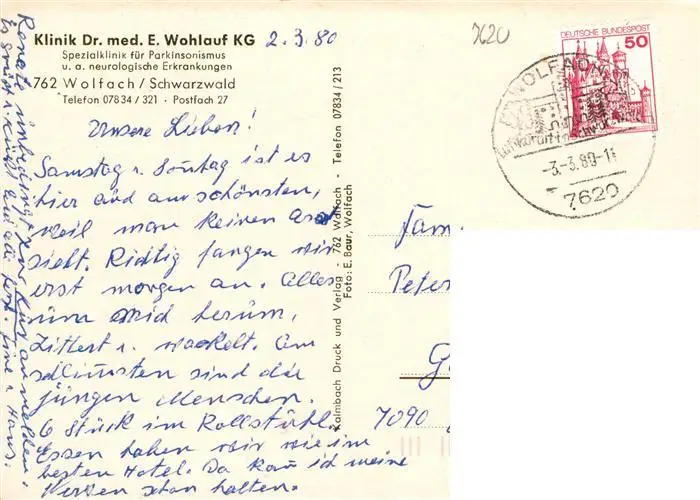 Klinik Dr. med. E. Wohlauf KG 2.3.80
Spezialklinik für Parkinsonismus
u. a. neurologische Erkrankungen
762 Wolfach / Schwarzwald
Telefon 07834 / 321 · Postfach 27
Unsere Lieben!
Samstag u. Sonntag ist es
hier am schönsten,
weil man keinen Arzt
sieht. Richtig fangen wir
erst morgen an. Alles
um mich herum,
zittert u. wackelt. Am
schlimmsten sind die
jungen Menschen.
6 Stück im Rollstuhl.
Essen haben wir wie im
besten Hotel. Da kann ich meine
Kerzen schon halten.
Renate unbedingt zur Kur anmelden.
Es grüßt u. küßt Euch alle u. Hans.
Kolmbach Druck und Verlag · 762 Wolfach · Telefon 07834 / 213
Foto: E. Baur, Wolfach
7620
DEUTSCHE BUNDESPOST
50
WOLFACH
-3.-3.80-1
7620
Fam.
Peter
G
7090